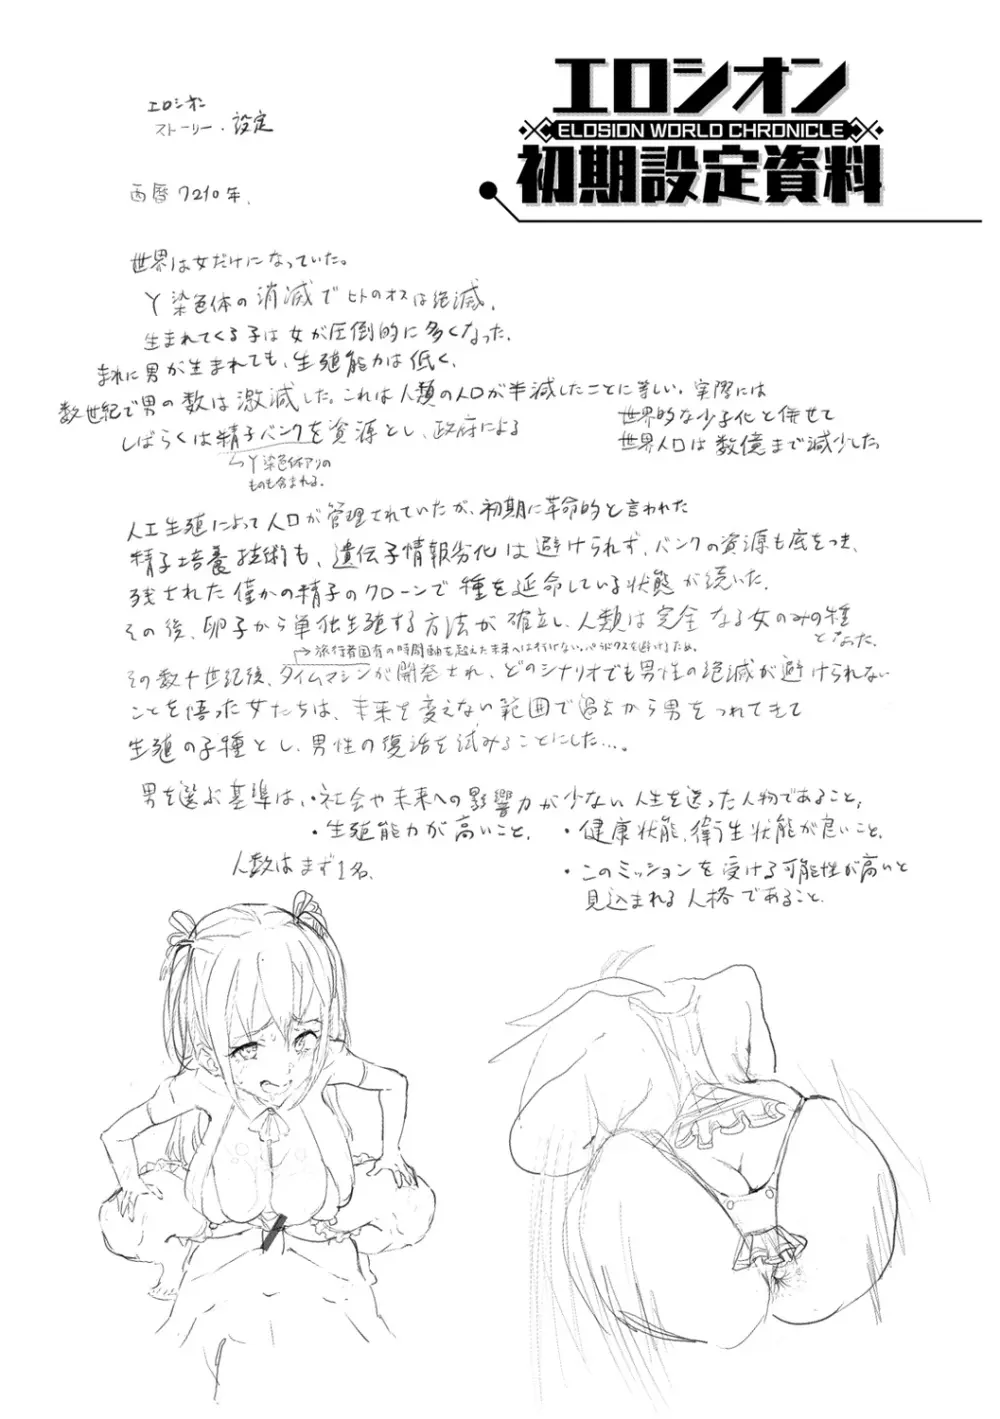 エロシオン
ELOSION WORLD CHRONICLE
初期設定資料
エロシオン
ストーリー・設定
西暦7210年、
世界は女だけになっていた。
Y染色体の消滅でヒトのオスは絶滅、
生まれてくる子は女が圧倒的に多くなった。
まれに男が生まれても、生殖能力は低く、
数世紀で男の数は激減した。これは人類の人口が半減したことに等しい。実際には
世界的な少子化と併せて
世界人口は数億まで減少した
しばらくは精子バンクを資源とし、政府による
↳Y染色体アリの
ものも含まれる。
人工生殖によって人口が管理されていたが、初期に革命的と言われた
精子培養技術も、遺伝子情報劣化は避けられず、バンクの資源も底をつき、
残された僅かの精子のクローンで種を延命している状態が続いた。
その後、卵子から単独生殖する方法が確立し、人類は完全なる女のみの種
となった。
→旅行者固有の時間軸を超えた未来へは行けない。パラドクスを避けるため。
その数十世紀後、タイムマシンが開発され、どのシナリオでも男性の絶滅が避けられない
ことを悟った女たちは、未来を変えない範囲で過去から男をつれてきて
生殖の子種とし、男性の復活を試みることにした…。
男を選ぶ基準は、・社会や未来への影響力が少ない人生を送った人物であること、
・生殖能力が高いこと、 ・健康状態、衛生状態が良いこと、
・このミッションを受ける可能性が高いと
見込まれる人格であること、
人数はまず1名、